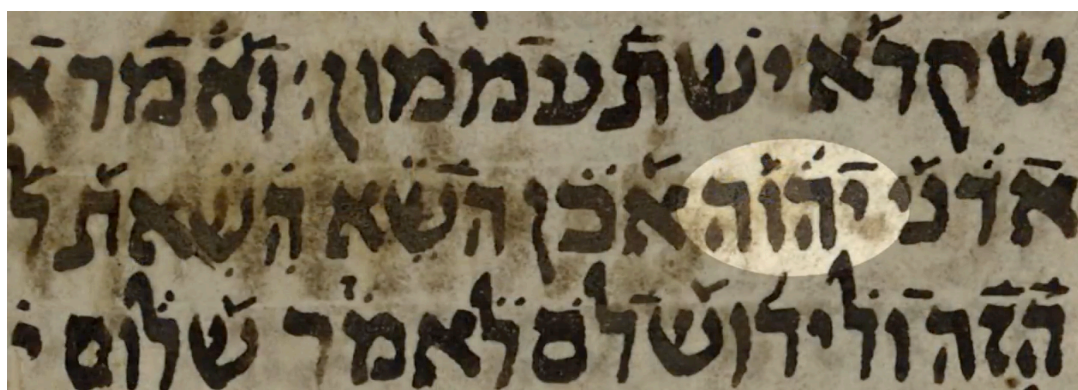 שקרא ישתעממון׃ ואמר א
אדני יהוה אכן השא השאת ל
הזה ולירושלם לאמר שלום י